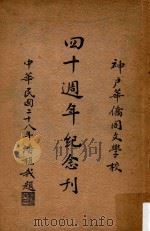 神戶華僑同文學校
四十週年紀念刊
中華民國二十八年
題